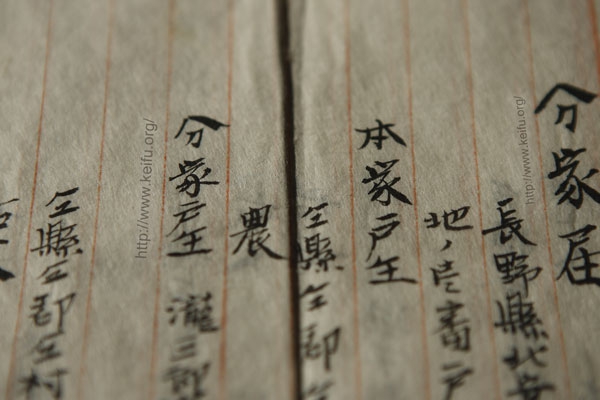 分家届
長野縣北安
地ノ壱番戸
本家戸主
仝縣仝郡仝
農
分家戸主 瀧三郎
仝縣仝郡仝村
http://www.keifu.org/
http://www.keifu.org/